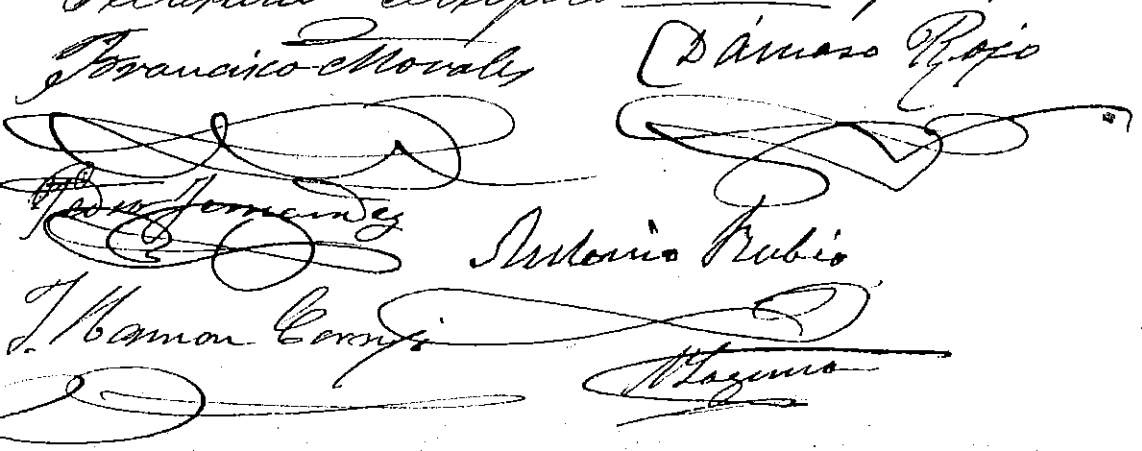 Francisco Morales
Dámaso Rojo
Pedro Fernandez
Antonio Rubio
J. Ramon Cornejo